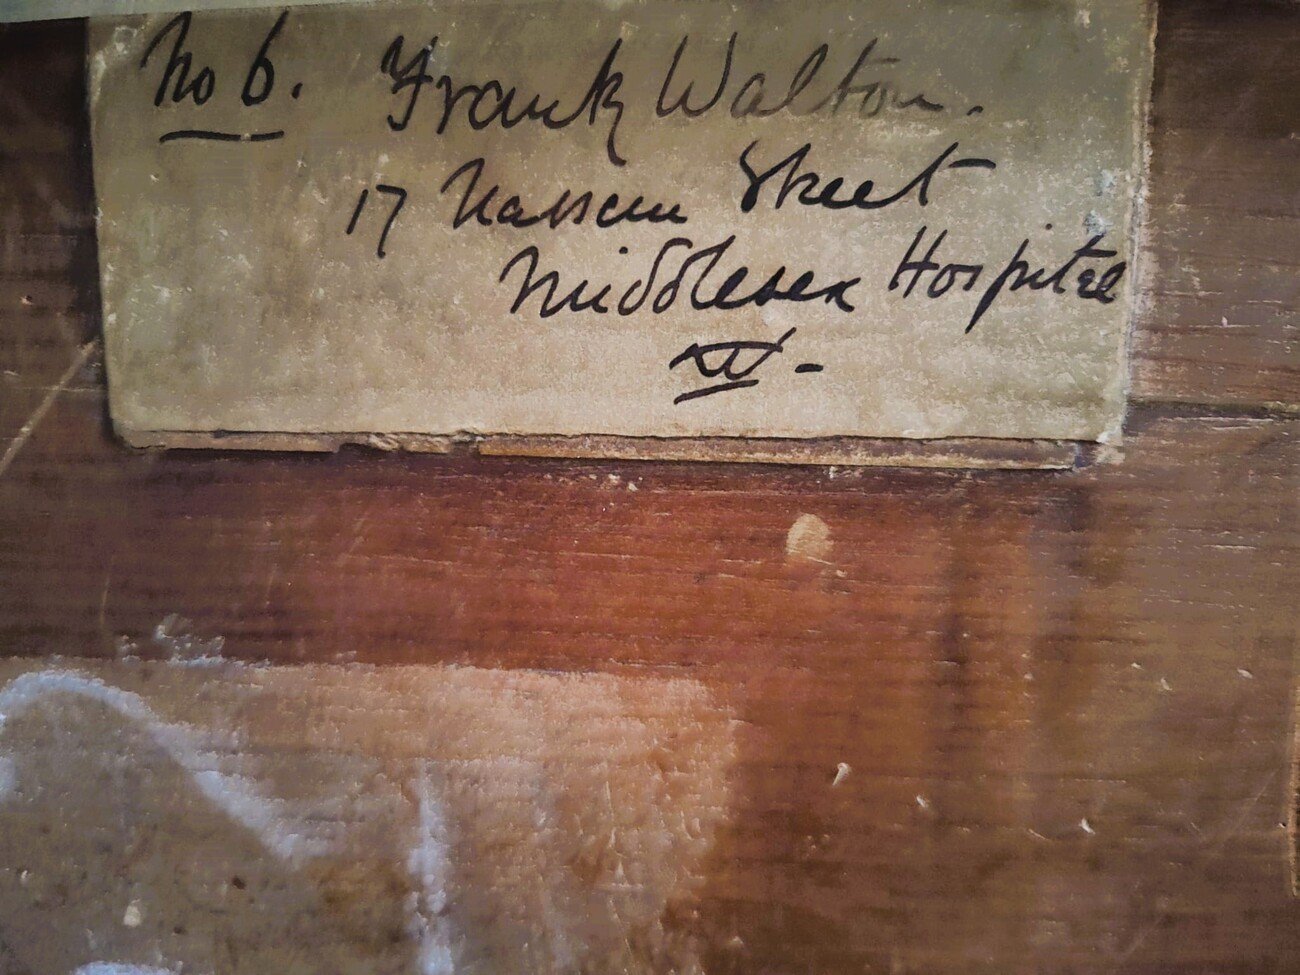 No 6. Frank Walton.
17 Nassau Street
Middlesex Hospital
W-